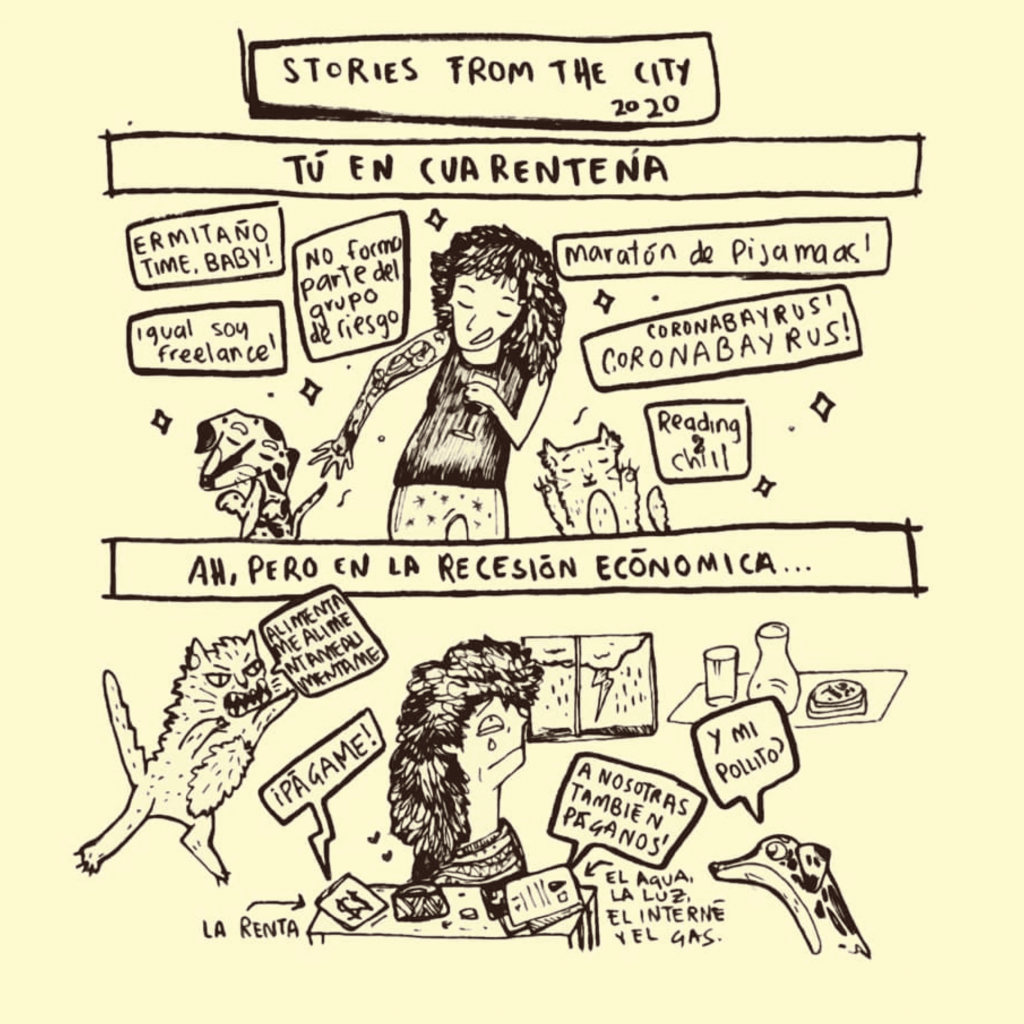 STORIES FROM THE CITY
2020
TÚ EN CUARENTENA
ERMITAÑO
TIME, BABY!
No formo
parte del
grupo
de riesgo
Maratón de Pijamaas!
¡igual soy
freelance!
CORONABAYRUS!
CORONABAYRUS!
Reading
&
chill
AH, PERO EN LA RECESIÓN ECÓNOMICA...
ALIMENTA
ME ALIME
NTAMEALI
MENTAME
¡PÁGAME!
Y MI
POLLITO?
A NOSOTRAS
TAMBIÉN
PÁGANOS!
LA RENTA
$
EL AGUA,
LA LUZ,
EL INTERNE
Y EL GAS.